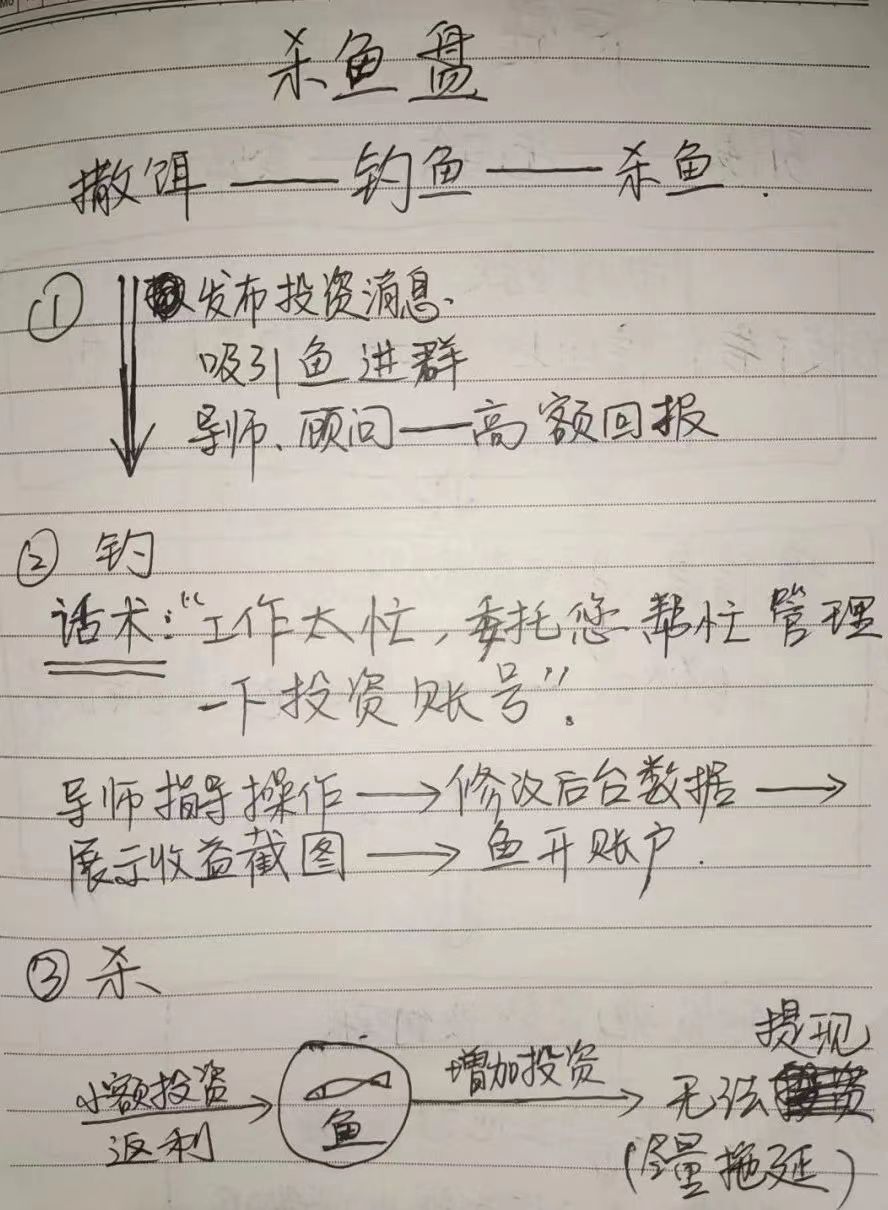 杀鱼盘
撒饵——钓鱼——杀鱼.
① 发布投资消息.
吸引鱼进群
导师、顾问——高额回报
② 钓
话术:“工作太忙,委托您帮忙管理
一下投资账号”。
导师指导操作→修改后台数据→
展示收益截图→鱼开账户.
③ 杀
提现
小额投资 增加投资 无法
返利 鱼 (尽量拖延)